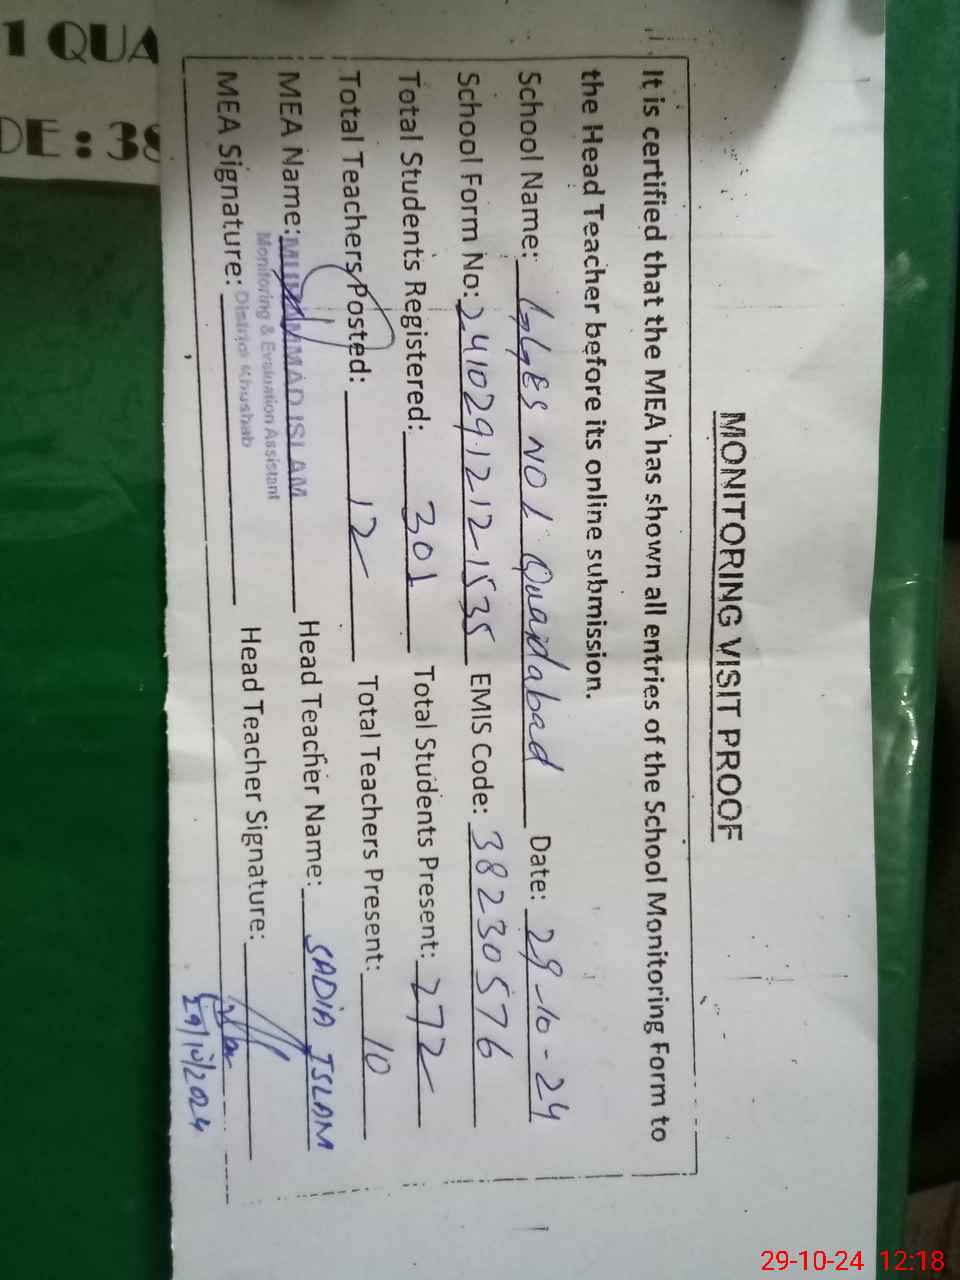 MONITORING VISIT PROOF
It is certified that the MEA has shown all entries of the School Monitoring Form to
the Head Teacher before its online submission.
School Name: GGES NO 1 Quaidabad Date: 29-10-24
School Form No: 24102912121535 EMIS Code: 38230576
Total Students Registered: 301 Total Students Present: 272
Total Teachers Posted: 12 Total Teachers Present: 10
MEA Name: MUHAMMAD ISLAM Head Teacher Name: SADIA ISLAM
Monitoring & Evaluation Assistant
MEA Signature: District Khushab Head Teacher Signature:
29/10/2024
1 QUA
DE : 38
29-10-24 12:18